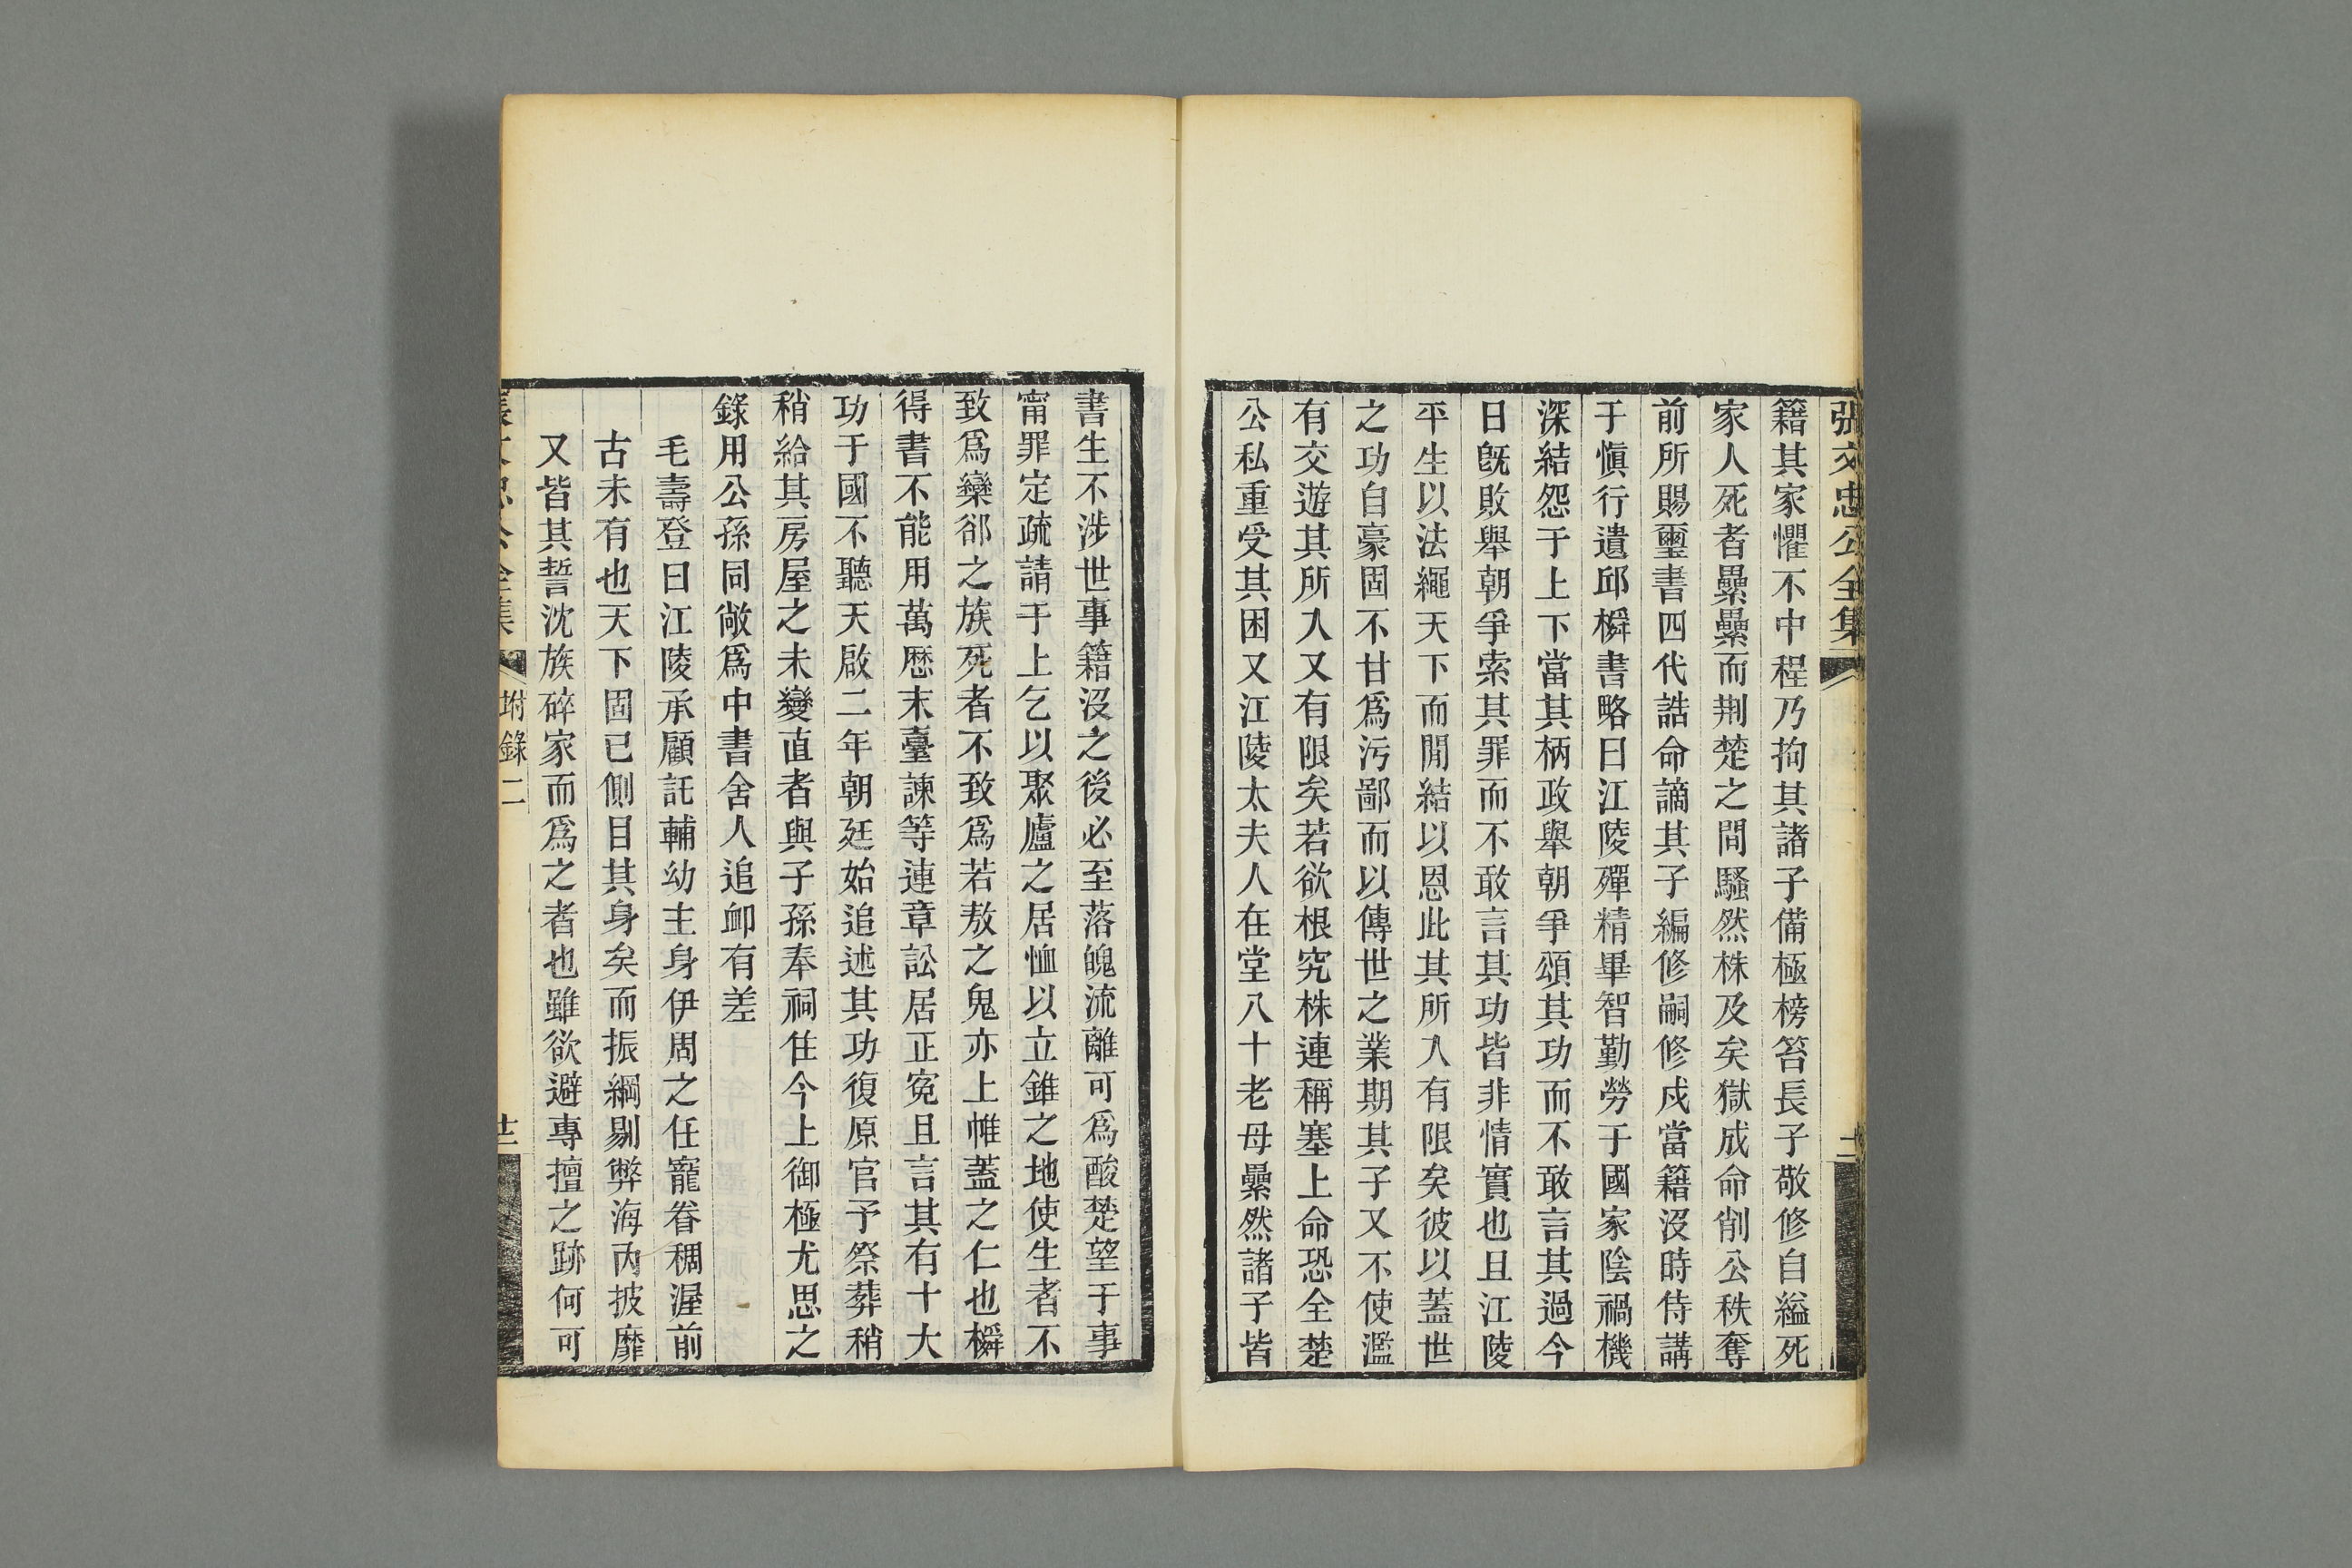 張文忠公全集
籍其家懼不中程乃拘其諸子備極榜笞長子敬修自縊死
家人死者纍纍而荆楚之間騷然株及矣獄成命削公秩奪
前所賜璽書四代誥命謫其子編修嗣修戍當籍沒時侍講
于愼行遺邱橓書略曰江陵殫精畢智勤勞于國家陰禍機
深結怨于上下當其柄政舉朝爭頌其功而不敢言其過今
日旣敗舉朝爭索其罪而不敢言其功皆非情實也且江陵
平生以法繩天下而閒結以恩此其所入有限矣彼以蓋世
之功自豪固不甘爲污鄙而以傳世之業期其子又不使濫
有交遊其所入又有限矣若欲根究株連稱塞上命恐全楚
公私重受其困又江陵太夫人在堂八十老母纍然諸子皆
書生不涉世事籍沒之後必至落魄流離可爲酸楚望于事
甯罪定疏請于上乞以聚廬之居恤以立錐之地使生者不
致爲欒郤之族死者不致爲若敖之鬼亦上帷蓋之仁也橓
得書不能用萬厯末臺諫等連章訟居正寃且言其有十大
功于國不聽天啟二年朝廷始追述其功復原官予祭葬稍
稍給其房屋之未變直者與子孫奉祠住今上御極尤思之
錄用公孫同敞爲中書舍人追卹有差
毛壽登曰江陵承顧託輔幼主身伊周之任寵眷稠渥前
古未有也天下固已側目其身矣而振綱剔弊海內披靡
又皆其誓沈族碎家而爲之者也雖欲避專擅之跡何可
附錄二